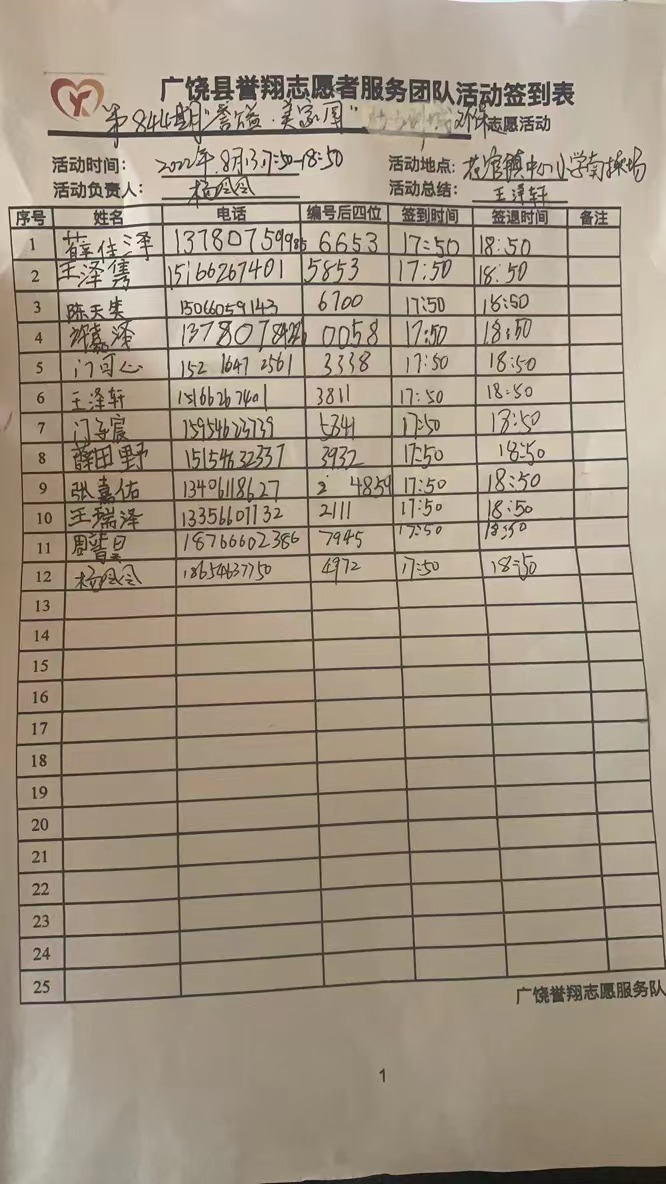 广饶县誉翔志愿者服务团队活动签到表
第844期"誉益·美家园" 环保志愿活动
活动时间: 2022年.8月13.17:50-18:50 活动地点: 花官镇中心小学南操场
活动负责人: 杨凤令 活动总结: 王泽轩
序号 姓名 电话 编号后四位 签到时间 签退时间 备注
1 薛佳泽 13780759985 6653 17:50 18:50
2 王泽隽 15166267401 5853 17:50 18:50
3 陈天奕 15066059143 6700 17:50 18:50
4 嘉泽 1378078 0058 17:50 18:50
5 门可心 152 1647 2561 3338 17:50 18:50
6 王泽轩 15166267401 3811 17:50 18:50
7 门子宸 15954623739 5341 17:50 18:50
8 薛田野 15154632337 3932 17:50 18:50
9 张嘉佑 13406118627 4859 17:50 18:50
10 王瑞泽 13356607732 2111 17:50 18:50
11 周 18766602386 7945 17:50 18:50
12 杨凤令 18654637750 4972 17:50 18:50
13
14
15
16
17
18
19
20
21
22
23
24
25
广饶誉翔志愿服务队
1